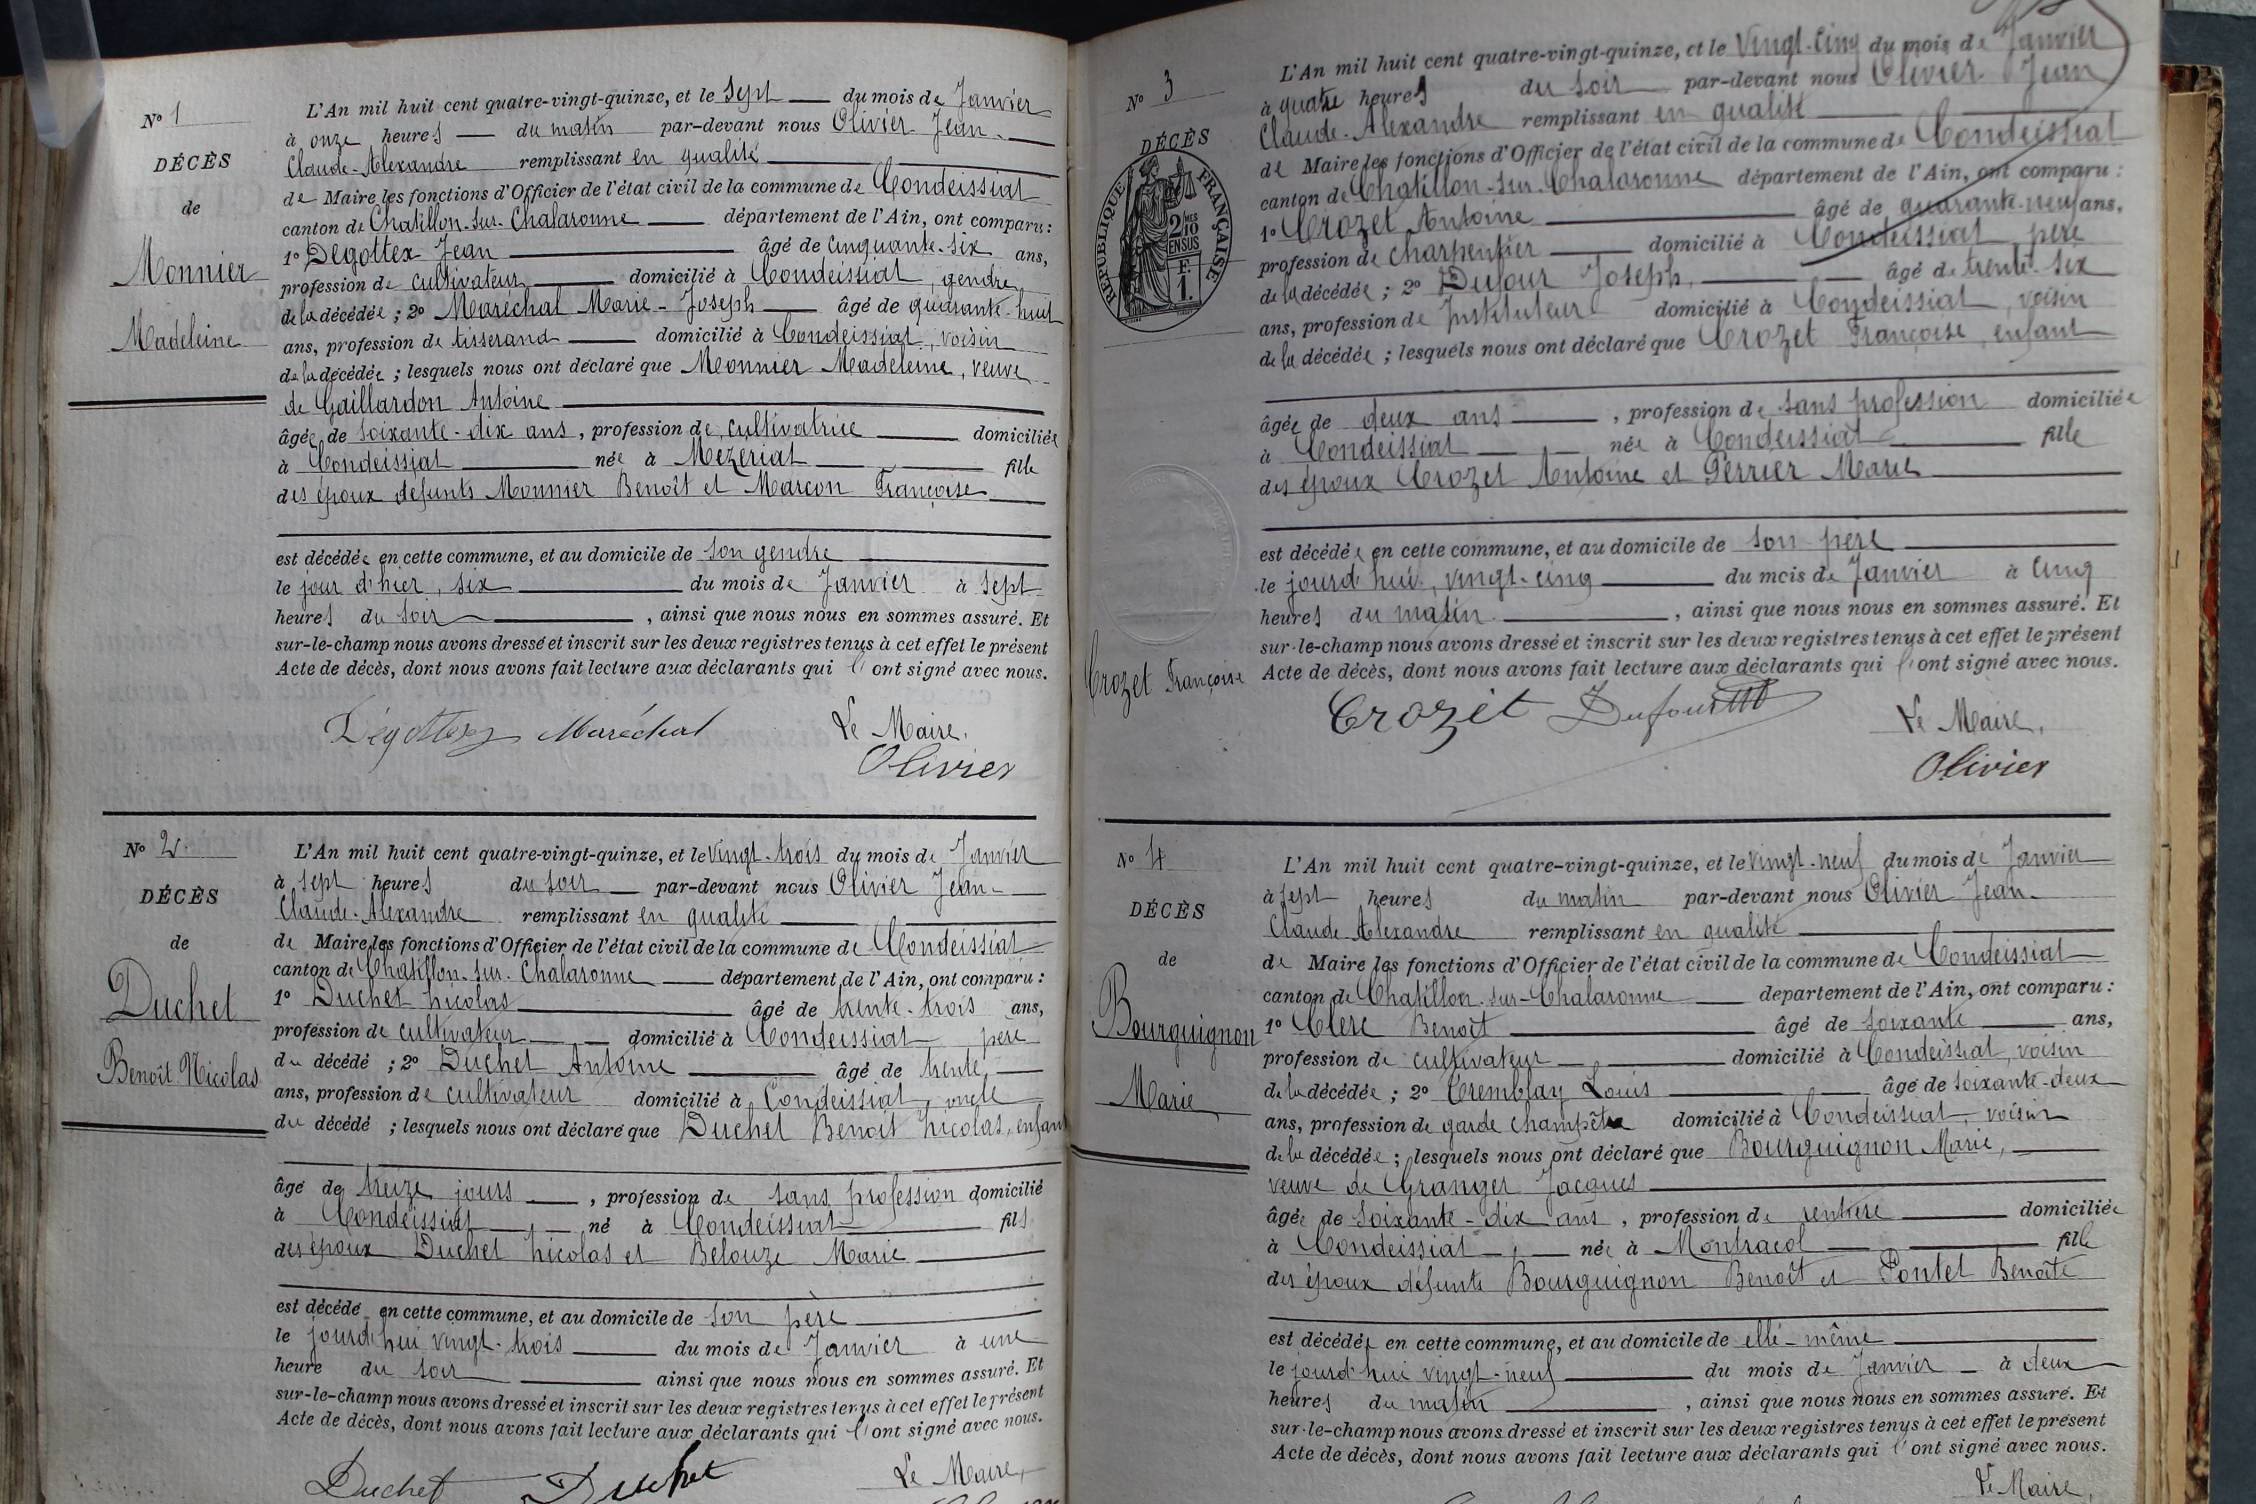 Nº 1
DÉCÈS
de
Monnier
Madeleine
L'An mil huit cent quatre-vingt-quinze, et le sept du mois de Janvier
à onze heures du matin par-devant nous Olivier Jean-
Claude-Alexandre remplissant en qualité
de Maire les fonctions d'Officier de l'état civil de la commune de Condeissiat
canton de Chatillon-sur-Chalaronne département de l'Ain, ont comparu :
1º Dégottex Jean âgé de cinquante-six ans,
profession de cultivateur domicilié à Condeissiat, gendre
de la décédée ; 2º Maréchal Marie-Joseph âgé de quarante-huit
ans, profession de tisserand domicilié à Condeissiat, voisin
de la décédée ; lesquels nous ont déclaré que Monnier Madeleine, veuve
de Gaillardon Antoine
âgée de soixante-dix ans, profession de cultivatrice domiciliée
à Condeissiat née à Mézériat fille
des époux défunts Monnier Benoît et Marcon Françoise
est décédée en cette commune, et au domicile de son gendre
le jour d'hier, six du mois de Janvier à sept
heures du soir, ainsi que nous nous en sommes assuré. Et
sur-le-champ nous avons dressé et inscrit sur les deux registres tenus à cet effet le présent
Acte de décès, dont nous avons fait lecture aux déclarants qui l'ont signé avec nous.
Dégottex Maréchal Le Maire,
Olivier
Nº 2
DÉCÈS
de
Duchet
Benoît Nicolas
L'An mil huit cent quatre-vingt-quinze, et le vingt-trois du mois de Janvier
à sept heures du soir par-devant nous Olivier Jean-
Claude-Alexandre remplissant en qualité
de Maire les fonctions d'Officier de l'état civil de la commune de Condeissiat
canton de Chatillon-sur-Chalaronne département de l'Ain, ont comparu :
1º Duchet Nicolas âgé de trente-trois ans,
profession de cultivateur domicilié à Condeissiat père
du décédé ; 2º Duchet Antoine âgé de trente
ans, profession de cultivateur domicilié à Condeissiat, oncle
du décédé ; lesquels nous ont déclaré que Duchet Benoît Nicolas, enfant
âgé de treize jours, profession de sans profession domicilié
à Condeissiat, né à Condeissiat fils
des époux Duchet Nicolas et Belouze Marie
est décédé en cette commune, et au domicile de son père
le jourd'hui vingt-trois du mois de Janvier à une
heure du soir ainsi que nous nous en sommes assuré. Et
sur-le-champ nous avons dressé et inscrit sur les deux registres tenus à cet effet le présent
Acte de décès, dont nous avons fait lecture aux déclarants qui l'ont signé avec nous.
Duchet Duchet Le Maire,
Nº 3
DÉCÈS
RÉPUBLIQUE FRANÇAISE
2 MES
10
EN SUS
F.
1.
Crozet Françoise
L'An mil huit cent quatre-vingt-quinze, et le vingt-cinq du mois de Janvier
à quatre heures du soir par-devant nous Olivier Jean
Claude-Alexandre remplissant en qualité
de Maire les fonctions d'Officier de l'état civil de la commune de Condeissiat
canton de Chatillon-sur-Chalaronne département de l'Ain, ont comparu :
1º Crozet Antoine âgé de quarante-neuf ans,
profession de charpentier domicilié à Condeissiat père
de la décédée ; 2º Dufour Joseph, âgé de trente-six
ans, profession de Instituteur domicilié à Condeissiat, voisin
de la décédée ; lesquels nous ont déclaré que Crozet Françoise, enfant
âgée de deux ans, profession de sans profession domiciliée
à Condeissiat née à Condeissiat fille
des époux Crozet Antoine et Perrier Marie
est décédée en cette commune, et au domicile de son père
le jourd'hui, vingt-cinq du mois de Janvier à cinq
heures du matin, ainsi que nous nous en sommes assuré. Et
sur-le-champ nous avons dressé et inscrit sur les deux registres tenus à cet effet le présent
Acte de décès, dont nous avons fait lecture aux déclarants qui l'ont signé avec nous.
Crozet Dufour Le Maire,
Olivier
Nº 4
DÉCÈS
de
Bourguignon
Marie
L'An mil huit cent quatre-vingt-quinze, et le vingt-neuf du mois de Janvier
à sept heures du matin par-devant nous Olivier Jean-
Claude Alexandre remplissant en qualité
de Maire les fonctions d'Officier de l'état civil de la commune de Condeissiat
canton de Chatillon-sur-Chalaronne département de l'Ain, ont comparu :
1º Clerc Benoît âgé de soixante ans,
profession de cultivateur domicilié à Condeissiat, voisin
de la décédée ; 2º Tremblay Louis âgé de soixante-deux
ans, profession de garde champêtre domicilié à Condeissiat, voisin
de la décédée ; lesquels nous ont déclaré que Bourguignon Marie,
veuve de Granger Jacques
âgée de soixante-dix ans, profession de rentière domiciliée
à Condeissiat, née à Montracol fille
des époux défunts Bourguignon Benoît et Pontet Benoîte
est décédée en cette commune, et au domicile de elle-même
le jourd'hui vingt-neuf du mois de Janvier à deux
heures du matin, ainsi que nous nous en sommes assuré. Et
sur-le-champ nous avons dressé et inscrit sur les deux registres tenus à cet effet le présent
Acte de décès, dont nous avons fait lecture aux déclarants qui l'ont signé avec nous.
Le Maire,